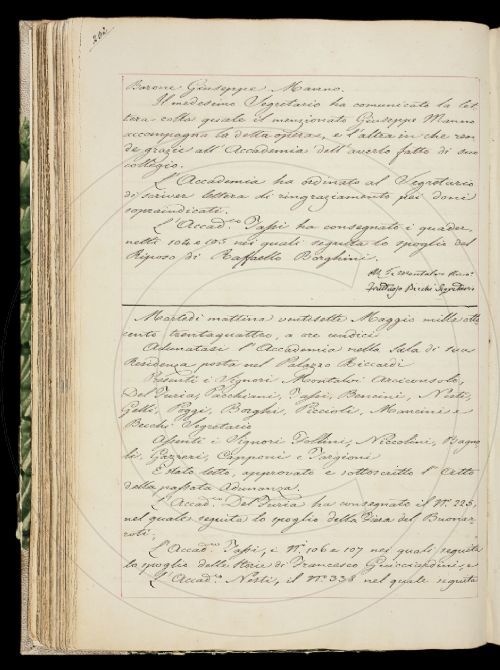 202
Barone Giuseppe Manno.
Il medesimo Segretario ha comunicato la let,
tera colla quale il menzionato Giuseppe Manno
accompagna la detta opera, e l'altra in che ren,
de grazie all'Accademia dell'averlo fatto di suo
collegio.
L'Accademia ha ordinato al Segretario
di scriver lettera di ringraziamento pei doni
sopraindicati.
L'Accad.co Tassi ha consegnato i quader,
netti 104 e 105 nei quali seguita lo spoglio del
Riposo di Raffaello Borghini.
Montalvo
Fruttuoso Becchi Segretario
Martedì mattina ventisette Maggio mille otto
cento trentaquattro, a ore undici
Adunatasi l'Accademia nella Sala di sua
Residenza posta nel Palazzo Riccardi
Presenti i Signori Montalvi Arciconsolo,
Del Furia, Pacchiani, Tassi, Bencini, Nesti,
Gelli, Poggi, Borghi, Piccioli, Mancini e
Becchi Segretario
Assenti i Signori Follini, Niccolini, Bagno
li, Gazzeri, Capponi e Targioni
È stato letto, approvato e sottoscritto l'Atto
della passata Adunanza.
L'Accad.co Del Furia ha consegnato il N.o 225,
nel quale seguita lo spoglio della Fiera del Buonar,
roti.
L'Accad.co Tassi, i N.i 106 e 107 nei quali seguita
lo spoglio delle Storie di Francesco Guicciardini, e
L'Accad.co Nesti, il N.o 338 nel quale seguita